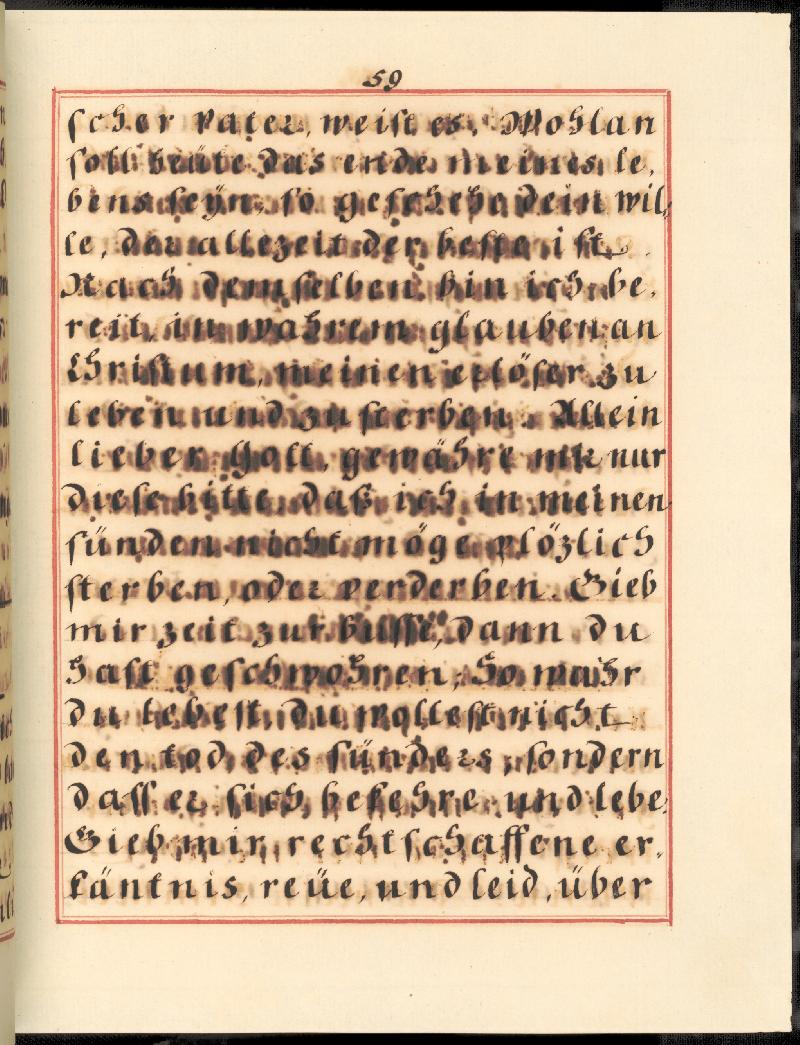 59
scher vater, weist es. Wohlan
soll heüte das ende meines le,
bens seÿn, so geschehe dein wil,
le, der allezeit der beste ist.
Nach demselben bin ich be,
reit, in wahrem glauben an
Christum, meinen erlöser zu
leben und zu sterben. Allein
lieber Gott, gewähre mir nur
diese bitte, daß ich in meinen
sünden nicht möge plözlich
sterben, oder verderben. Gieb
mir zeit zur busse, dann du
hast geschwohren; So wahr
du lebest, du wollest nicht
den tod des sünders, sondern
dass er sich bekehre und lebe,
Gieb mir rechtschaffene er,
käntnis, reüe, und leid, über